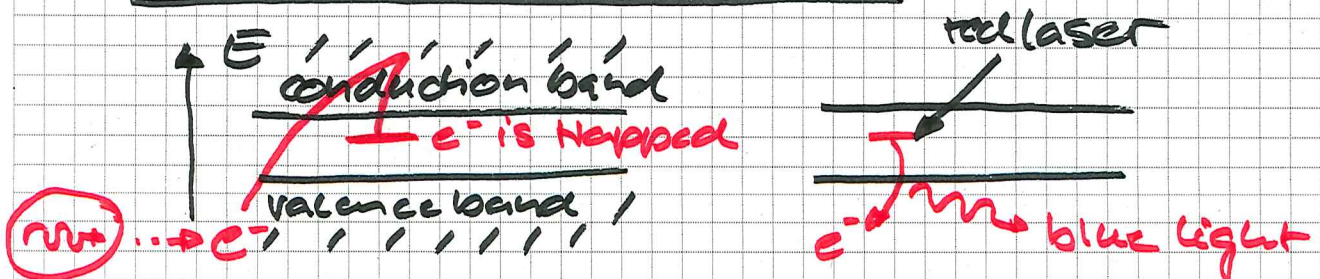 E
conduction band
e⁻ is trapped
valence band
e⁻
red laser
e⁻
blue light